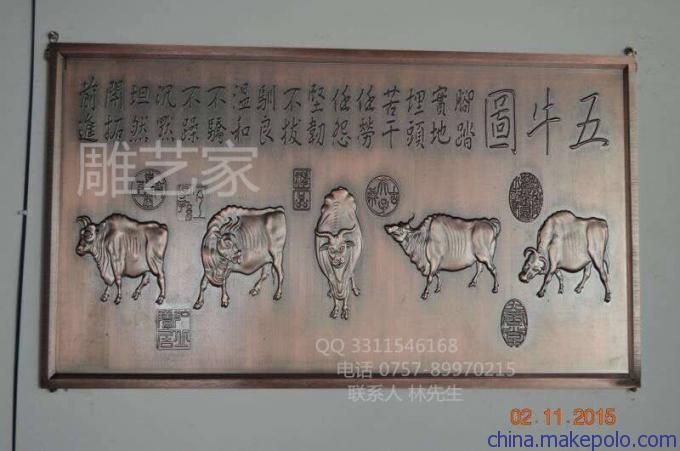 五牛圖
腳踏
實地
埋頭
苦干
任勞
任怨
堅韌
不拔
馴良
溫和
不驕
不躁
沉默
坦然
開拓
前進
雕艺家
QQ 3311546168
电话 0757-89970215
联系人 林先生
02.11.2015
china.makepolo.com